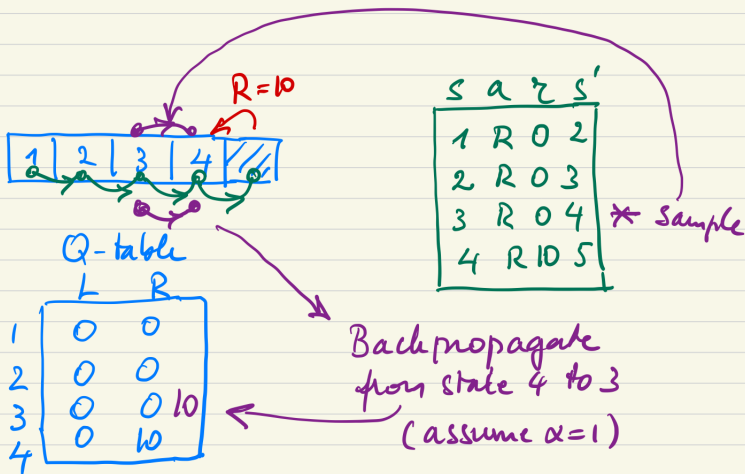 R=10
1 2 3 4
s a r s'
1 R 0 2
2 R 0 3
3 R 0 4 * sample
4 R 10 5
Q-table
L R
1 0 0
2 0 0
3 0 0 10
4 0 10
Backpropagate
from state 4 to 3
(assume α=1)